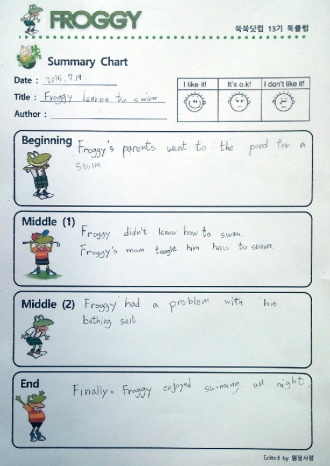 FROGGY
쑥쑥닷컴 13기 북클럽
Summary Chart
Date : 2015. 7. 19
Title : Froggy learns to swim
Author :
I like it! It's o.k! I don't like it!
Beginning
Froggy's parents went to the pond for a
swim
Middle (1)
Froggy didn't know how to swim.
Froggy's mom taught him how to swim.
Middle (2)
Froggy had a problem with his
bathing suit
End
Finally, Froggy enjoyed swimming all night.
Edited by